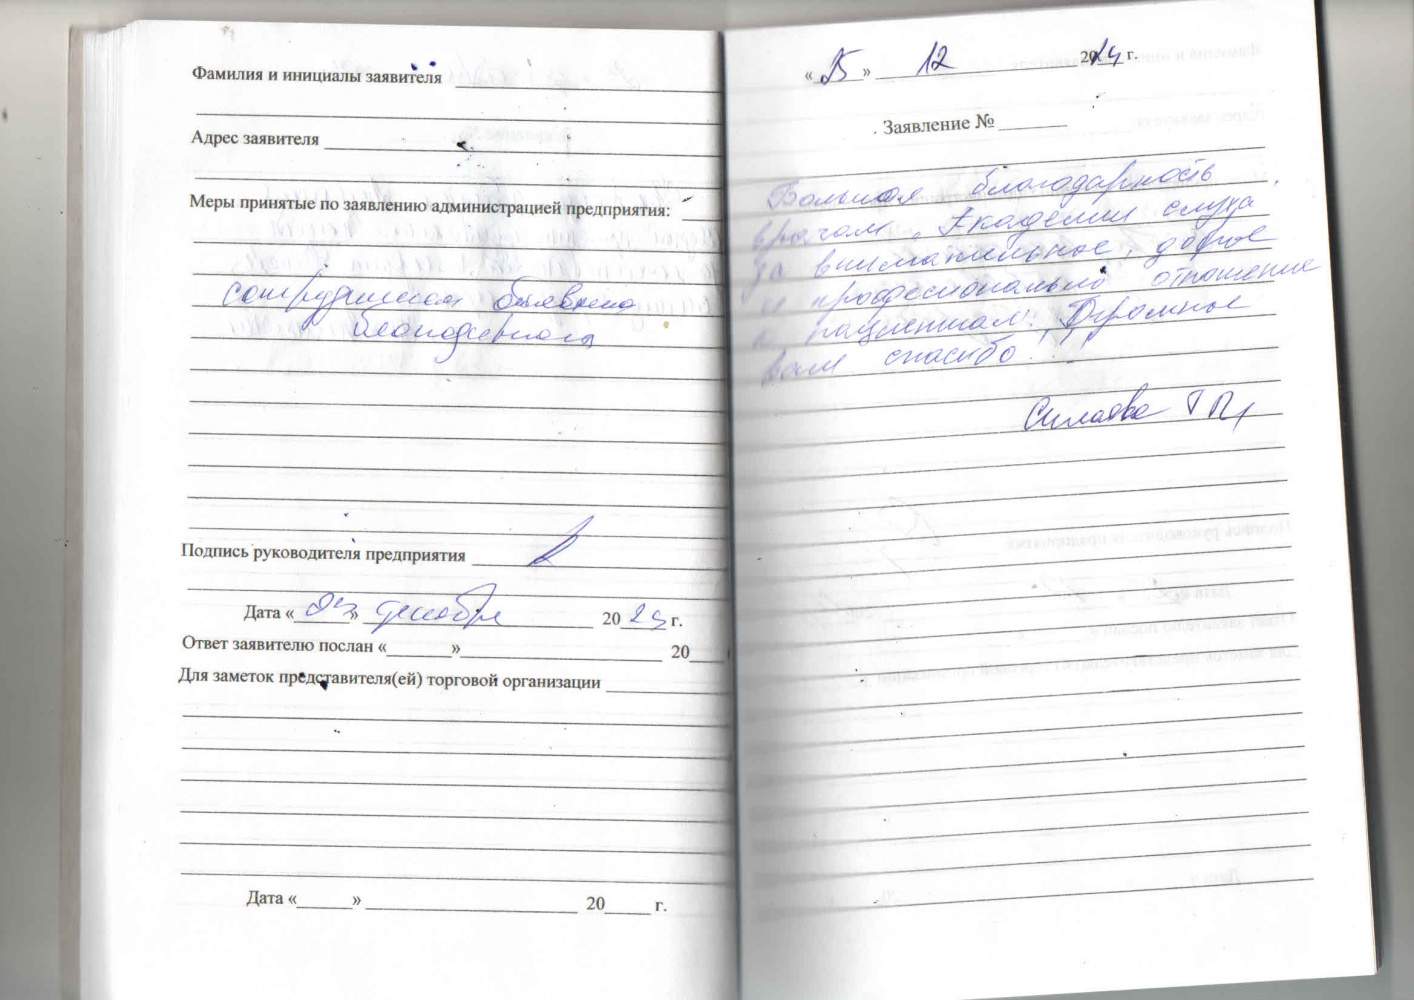 Фамилия и инициалы заявителя
Адрес заявителя
Меры принятые по заявлению администрацией предприятия:
сотрудникам объявлена
благодарность
Подпись руководителя предприятия
Дата « » декабря 2024 г.
Ответ заявителю послан « » 20
Для заметок представителя(ей) торговой организации
Дата « » 20 г.
«25» 12 2024 г.
Заявление №
Большая благодарность
врачам "Академии слуха"
за внимательное, доброе
и профессионально отношение
к пациентам! Огромное
вам спасибо!
Силаева Г П